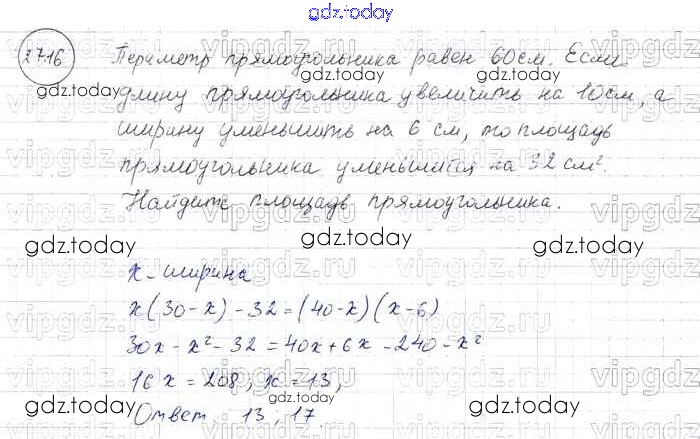 gdz.today
27.16 Периметр прямоугольника равен 60 см. Если
длину прямоугольника увеличить на 10 см, а
ширину уменьшить на 6 см, то площадь
прямоугольника уменьшится на 32 см².
Найдите площадь прямоугольника.
x - ширина
x(30-x)-32=(40-x)(x-6)
30x-x²-32=40x+6x-240-x²
16x=208; x=13;
Ответ 13, 17.
gdz.today gdz.today gdz.today
gdz.today gdz.today gdz.today
gdz.today gdz.today gdz.today
vipgdz.ru